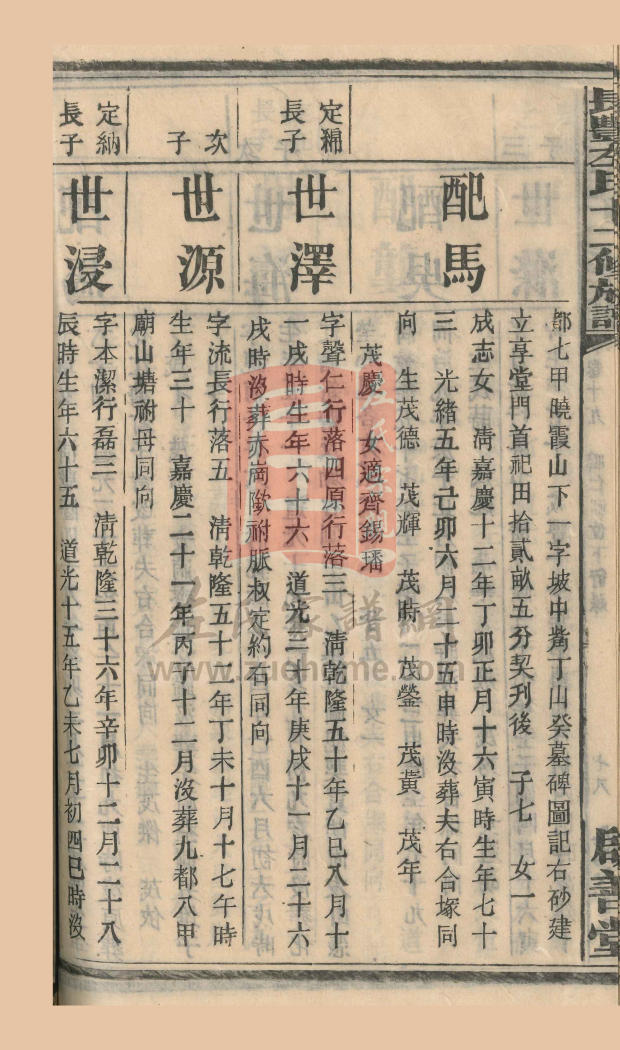 長豐左氏十二修族譜
啟善堂
都七甲曉霞山下一字坡中嘴丁山癸墓碑圖記右砂建
立享堂門首祀田拾貳畝五分契列後 子七 女一
配馬
成志女 清嘉慶十二年丁卯正月十六寅時生年七十
三 光緒五年己卯六月二十五申時沒葬夫右合塚同
向 生茂德 茂輝 茂時 茂鎣 茂黃 茂年
茂慶 女適齊錫璠
定綿
長子
世澤
字聲仁行落四原行落三 清乾隆五十年乙巳八月十
一戌時生年六十六 道光三十年庚戌十一月二十六
戌時沒葬赤崗歘祔脈叔定約右同向
次
子
世源
字流長行落五 清乾隆五十二年丁未十月十七午時
生年三十 嘉慶二十一年丙子十二月沒葬九都八甲
廟山塘祔母同向
定納
長子
世浸
字本潔行磊三 清乾隆三十六年辛卯十二月二十八
辰時生年六十五 道光十五年乙未七月初四巳時沒
左氏家譜網
www.zuohome.com